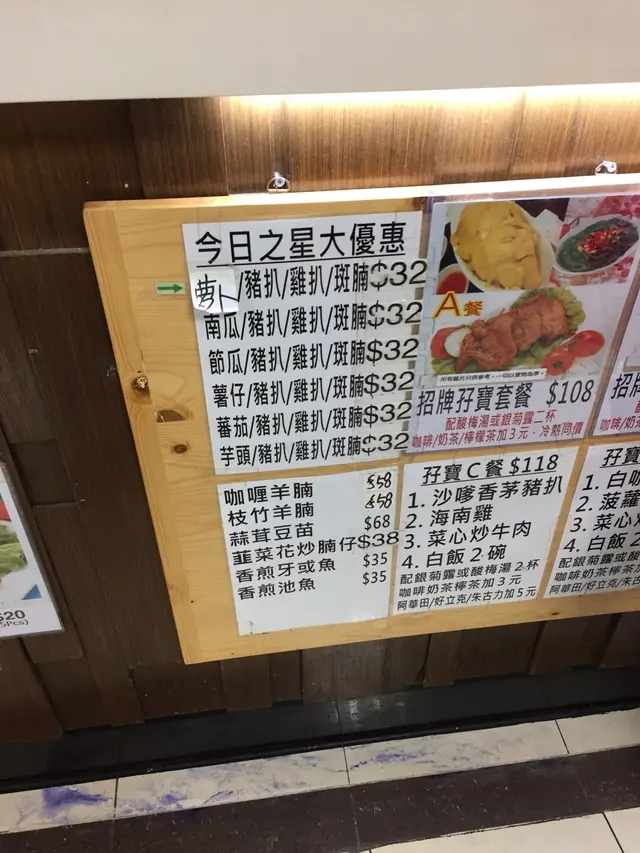 今日之星大優惠
萝卜/豬扒/雞扒/斑腩$32
南瓜/豬扒/雞扒/斑腩$32
節瓜/豬扒/雞扒/斑腩$32
薯仔/豬扒/雞扒/斑腩$32
蕃茄/豬扒/雞扒/斑腩$32
芋頭/豬扒/雞扒/斑腩$32
咖喱羊腩 $58
枝竹羊腩 $58
蒜茸豆苗 $68
韮菜花炒腩仔$38
香煎牙或魚 $35
香煎池魚 $35
A餐
所有圖片只供參考,一切以實物為準。
招牌孖寶套餐 $108
配酸梅湯或銀菊露二杯
咖啡/奶茶/檸檬茶加3元·冷熱同價
孖寶C餐$118
1. 沙嗲香茅豬扒
2. 海南雞
3. 菜心炒牛肉
4. 白飯2碗
配銀菊露或酸梅湯2杯
咖啡奶茶檸茶加3元
阿華田/好立克/朱古力加5元
招牌
孖寶
1. 白
2. 菠蘿
3. 菜心
4. 白飯2
配銀菊露或
咖啡奶茶檸
阿華田/好立
$20
5Pcs)